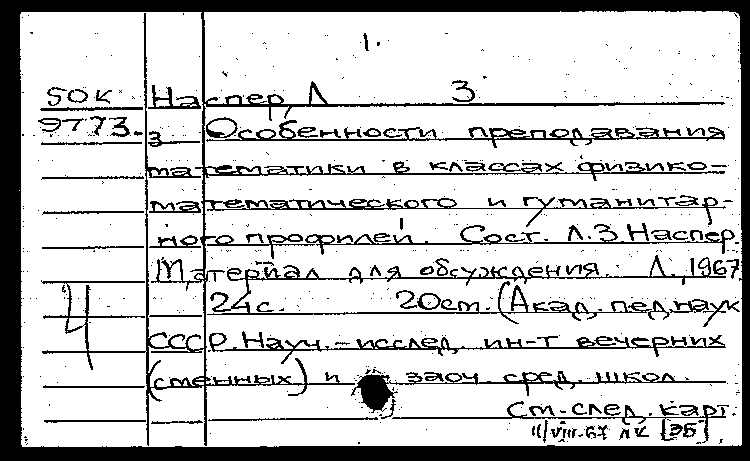 1.
50К Наспер, Л 3
9773-3 Особенности преподавания
математики в классах физико-
математического и гуманитар-
ного профилей. Сост. Л.З.Наспер.
Материал для обсуждения. Л., 1967
Ч 24с. 20см. (Акад. пед. наук
СССР. Науч.-исслед. ин-т вечерних
(сменных) и заоч. сред. школ.
См. след. карт.
11/VIII-67 ЛК [35]